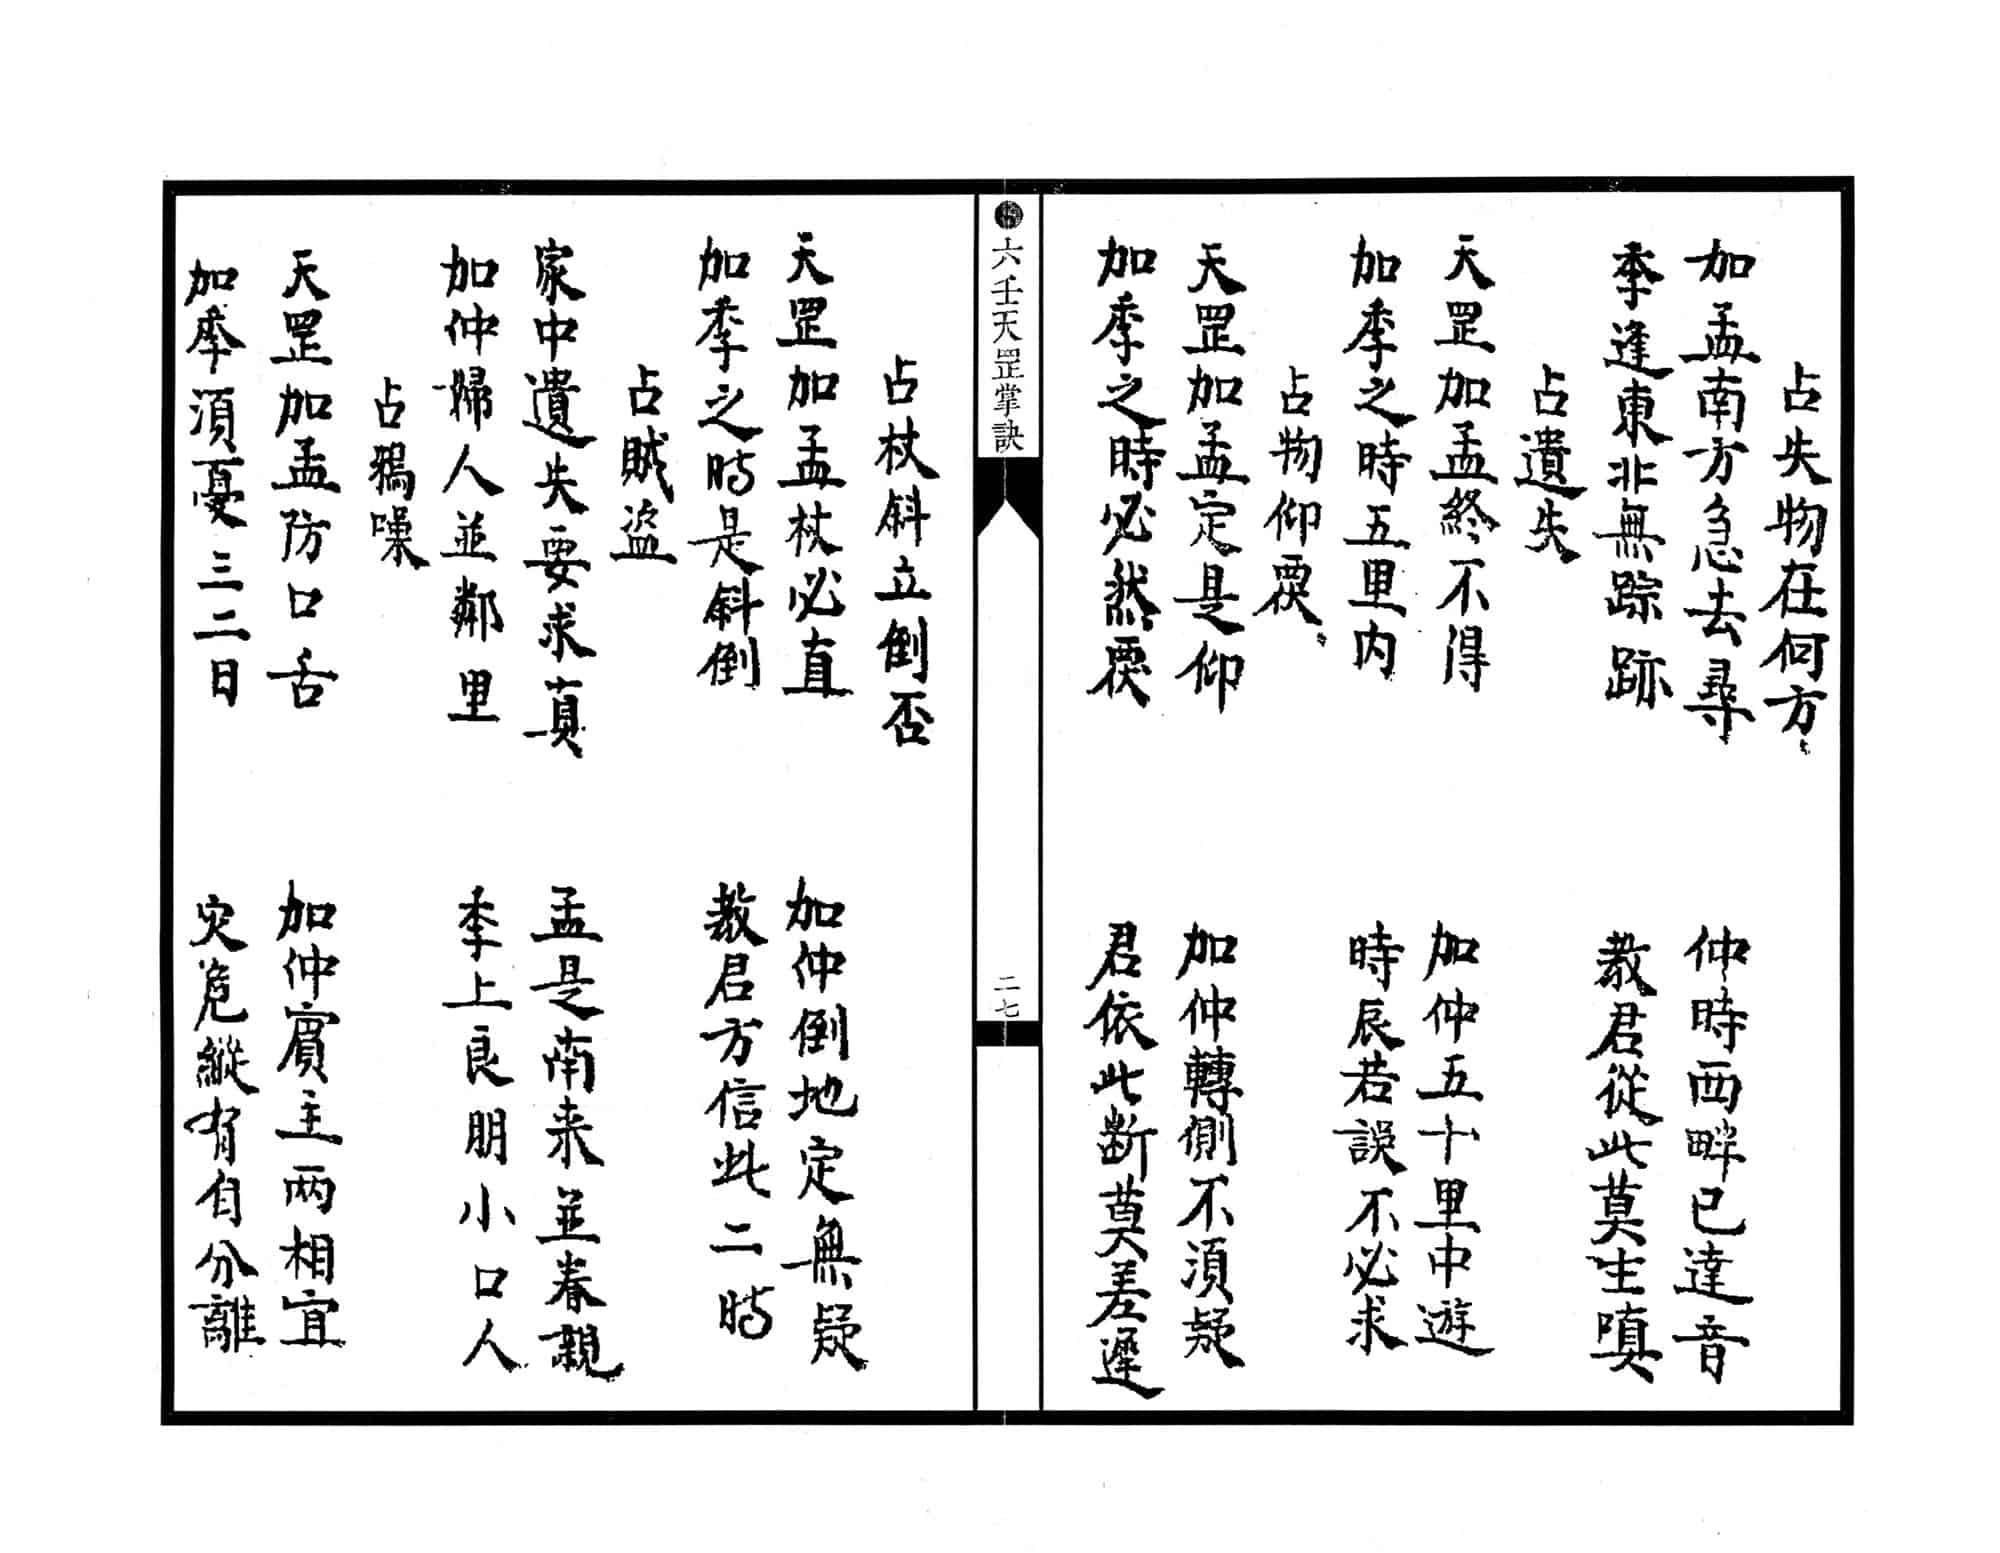 占失物在何方
加孟南方急去尋　仲時西畔已達音
季逢東非無踪跡　教君從此莫生嗔
占遺失
天罡加孟終不得　加仲五十里中遊
加季之時五里内　時辰若誤不必求
占物仰覆
天罡加孟定是仰　加仲轉側不須疑
加季之時必然覆　君依此断莫差遲
六壬天罡掌訣
二七
占杖斜立倒否
天罡加孟杖必直　加仲倒地定無疑
加季之时是斜倒　教君方信此二时
占賊盜
家中遺失要求真　孟是南来並眷親
加仲婦人並鄰里　季上良朋小口人
占鴉噪
天罡加孟防口舌　加仲賓主两相宜
加季須憂三二日　灾寃縱有自分離